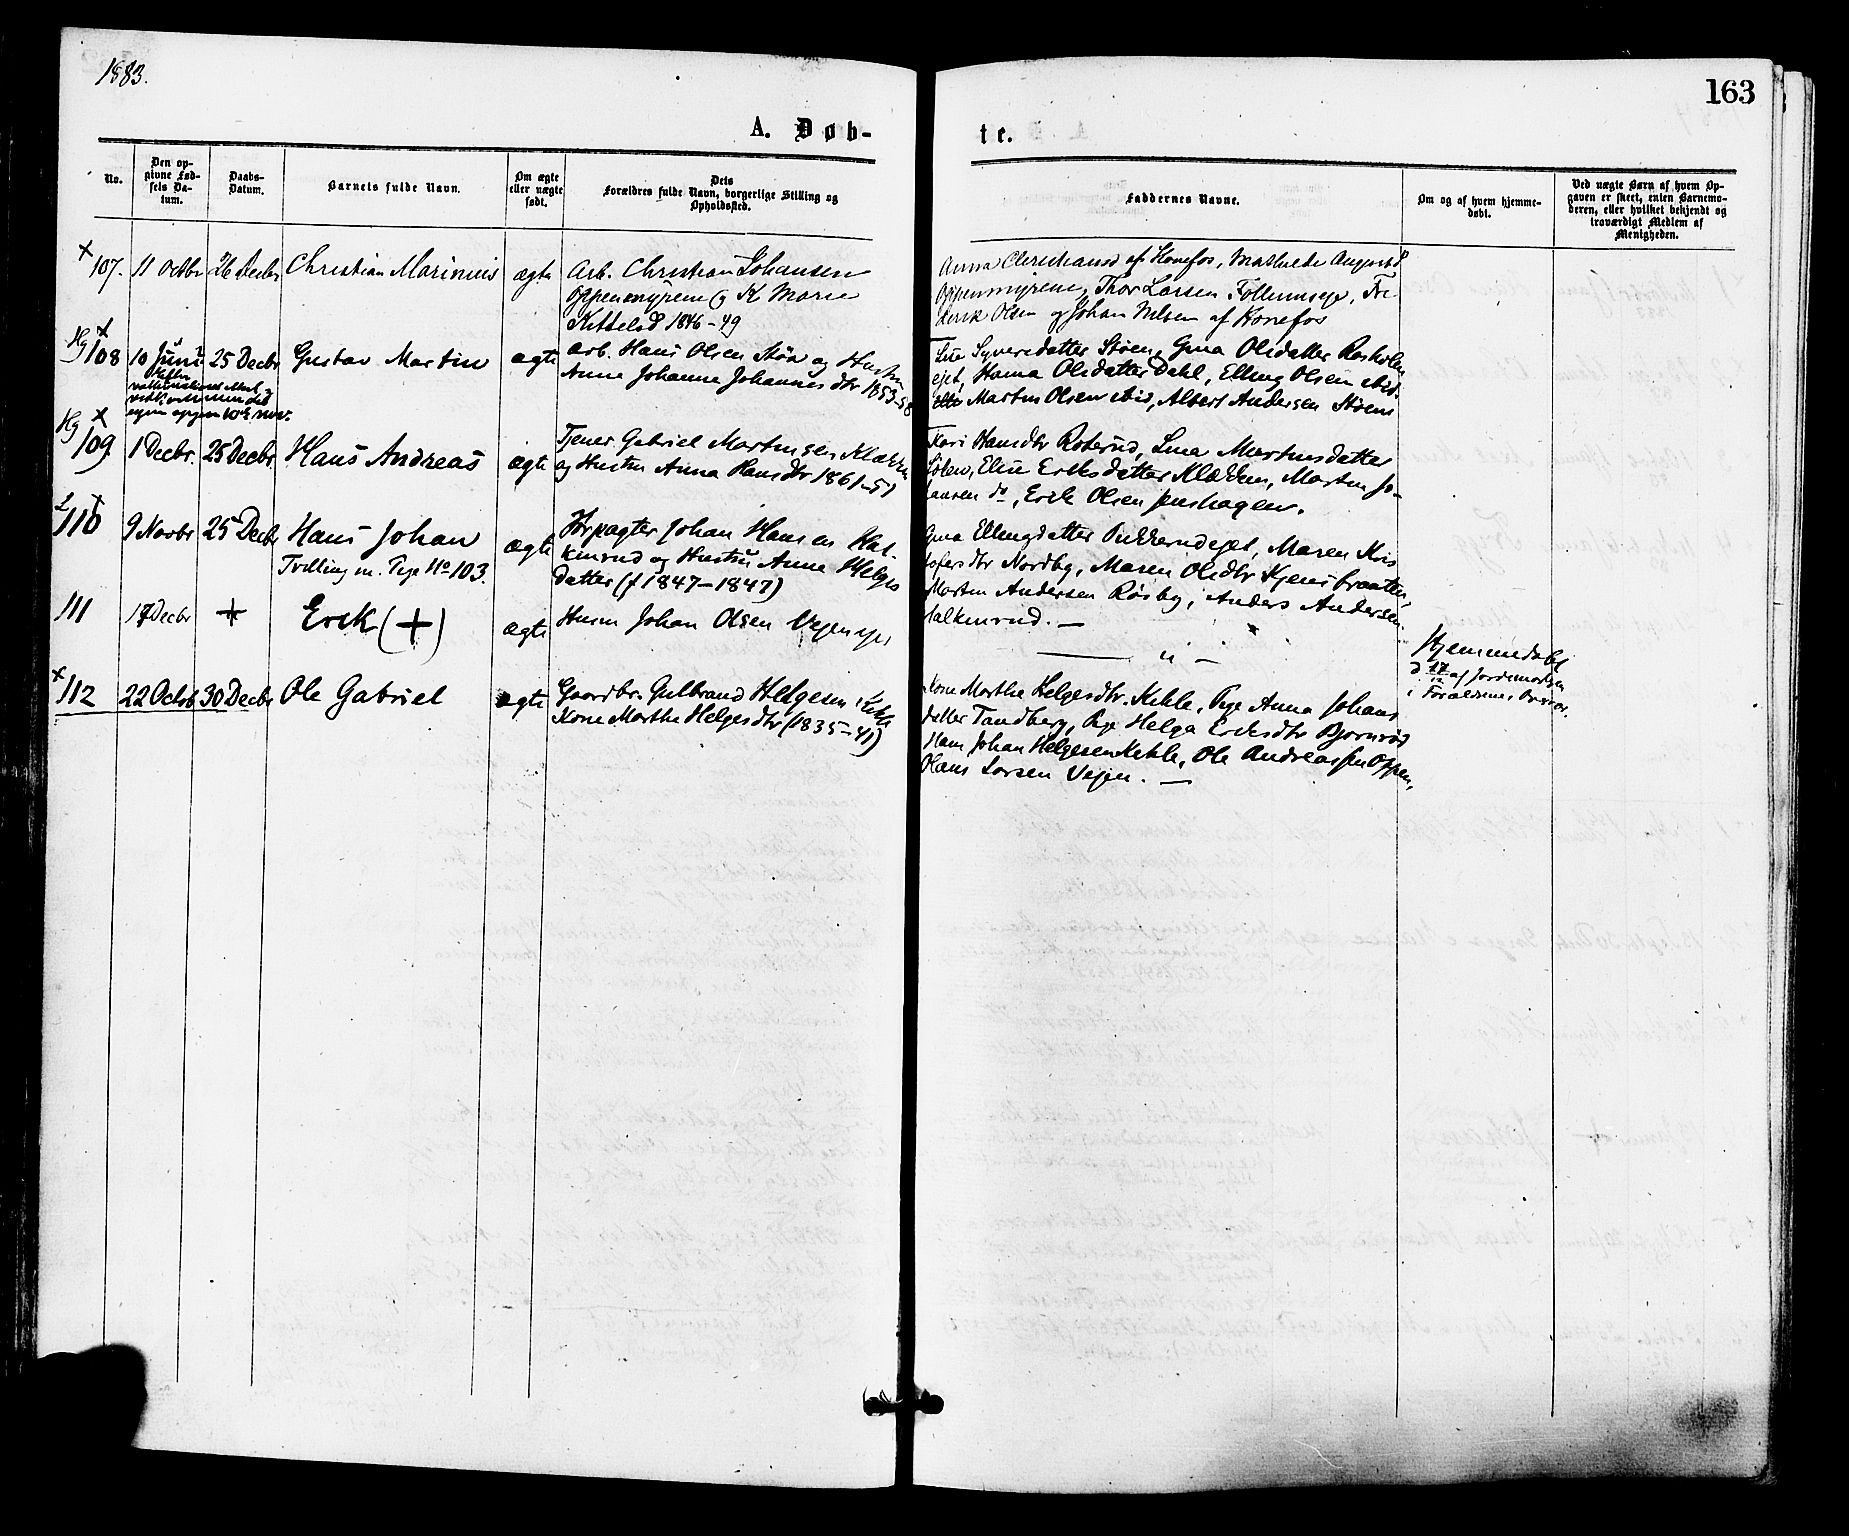 1883.
163
A. Døb-
te.
No.
Den op-
givne Fød-
sels Da-
tum.
Daabs-
Datum.
Barnets fulde Navn.
Om ægte
eller uægte
født.
Dets
Forældres fulde Navn, borgerlige Stilling og
Opholdssted.
Faddernes Navne.
Om og af hvem hjemme-
døbt.
Ved uægte Børn af hvem Op-
gaven er skeet, enten Barnemo-
deren, eller hvilket bekjendt og
troværdigt Medlem af
Menigheden.
107. 11 Octbr 26 Decbr Christian Marinius ægte Arb. Christian Johansen
Oppenmyrene og K Marie
Kittelsd 1846-49
Anna Christiansd af Honefos, Mathilde Augustd
Oppenmyrene, Thor Larsen Follumseje, Fre
derik Olsen og Johan Nilsen af Honefos
Hg 108 10 Juni 25 Decbr Gustav Martin ægte Arb. Hans Olsen Støn og Hustru
Anne Johanne Johannesdtr 1853-58
egen opgave 10de nov.
Lise Syversdatter Støen, Gina Olsdatter Rasholm
ejet, Hanna Olsdatter Dahl, Elling Olsen ibid.
Martin Olsen ibid, Albert Andersen Støens
Hg 109 1 Decbr. 25 Decbr Hans Andreas ægte Tjener Gabriel Martinsen Klækken
og Hustru Anna Hansdtr 1861-51
Kari Hansdtr Roterud, Lina Martinsdatter
Elise Ericksdatter Klækken, Martin Jo-
hansen do, Erik Olsen Jenshagen.
110 9 Novbr 25 Decbr Hans Johan ægte Forpagter Johan Hansen Hal-
Tvilling m. Pige No 103.
kinrud og Hustru Anne Helges
datter (f 1847-1847)
Gina Ellingsdatter Pukkerudejet, Maren Kris
tofersdtr Nordby, Maren Olsdtr Kjensbraatten,
Martin Andersen Røsby, Anders Andersen
Halkinrud. —
111 17 Decbr + Erik (+) ægte Husm Johan Olsen Vejenseje,
— " —
Hjemmedøbt
d 17/12 af Jordemoderen
i Forældrenes Overvær.
112 22 Octob 30 Decbr Ole Gabriel ægte Gaardbr. Gulbrand Helgesen Kihle
Kone Marthe Helgesdtr (1835-41)
Kone Marthe Helgesdtr. Kihle, Pige Anna Johans
datter Tandberg, Pige Helga Ericksdtr Bjørnrød
Ham Johan Helgesen Kihle, Ole Andreassen Oppen,
Hans Larsen Vejen. —